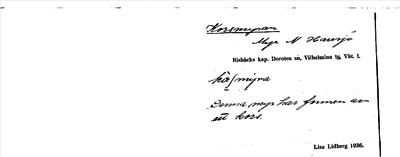 Korsmyran
Myr N Harrsjö
Risbäcks kap. Dorotea sn, Vilhelmina tg, Vbt. l.
myra
Denna myr har formen av
ett kors.
Lisa Lidberg 1936.